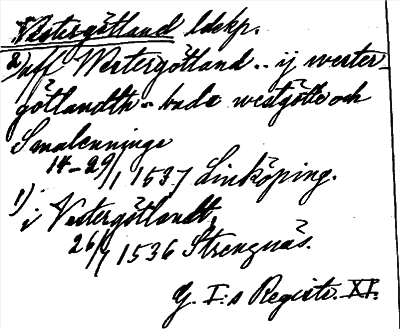 Västergötland ldskp.
2) uff Westergötland .. ij wester-
götlandth - bade westgötte och
Smalenninge
14-29/1 1537 Linköping.
1) i Vestergötlandt,
26/1 1536 Strengnäs.
G. I:s Registr. XI.